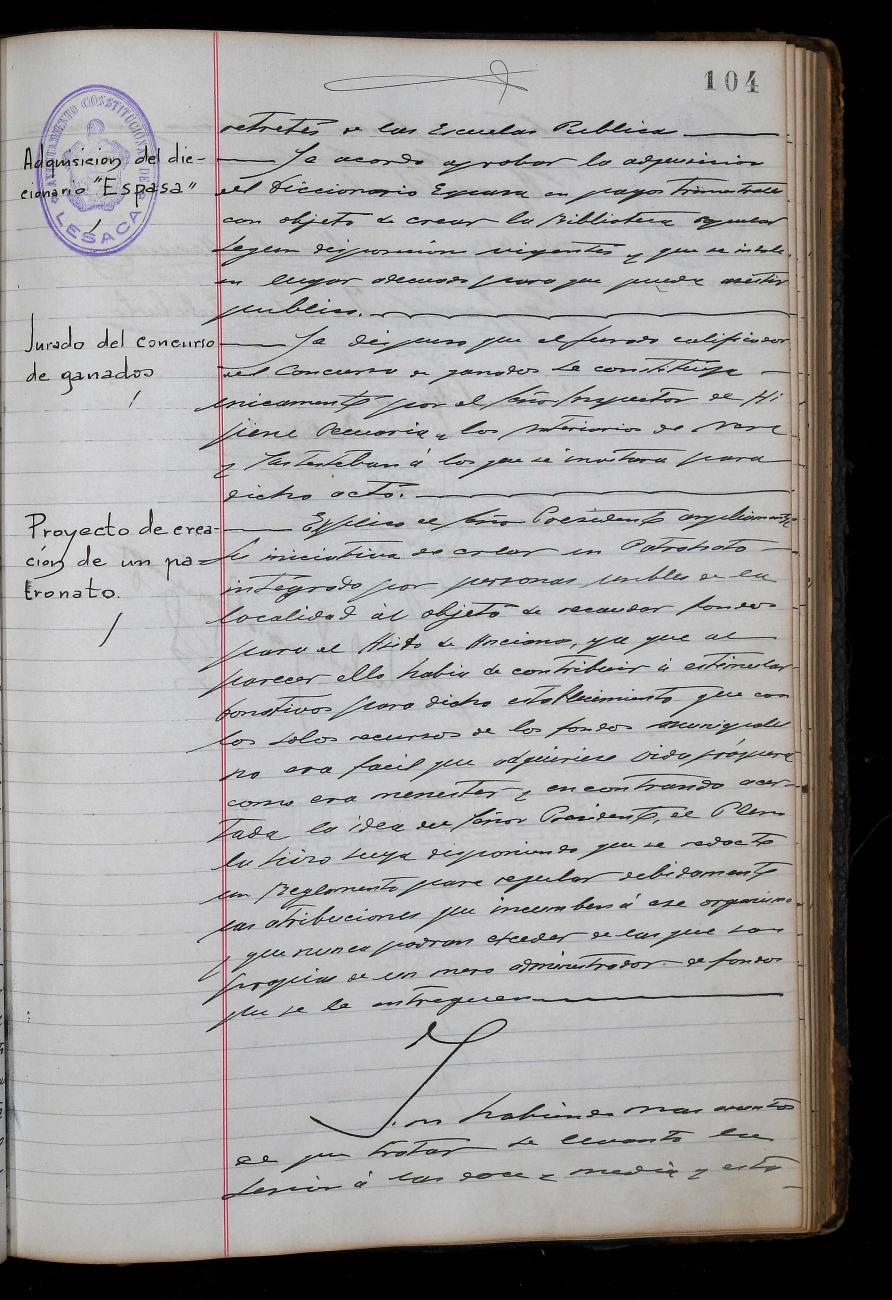 104
AYUNTAMIENTO CONSTITUCIONAL DE
LESACA
retretes de las Escuelas Publica
Adquisicion del dic-
cionario "Espasa"
Se acordo aprobar la adquisicion
del Diccionario Espasa en pagos trimestrale
con objeto de crear la Biblioteca
segun disposicion vigentes y que se instale
en lugar adecuado para que pueda asistir
publico.
Jurado del concurso
de ganados
Se dispuso que el Jurado calificador
del Concurso de ganados se constituya
unicamente por el Señor Inspector de Hi
giene Pecuaria y los Veterinarios de Vera
y Santesteban á los que se invitara para
dicho acto.
Proyecto de crea-
ción de un pa-
tronato.
Explico el Señor Presidente ampliamente
la iniciativa de crear un Patronato
integrado por personas de la
localidad al objeto de recaudar fondos
para el Asilo de Ancianos, ya que al
parecer ello habia de contribuir á estimular
donativos para dicho establecimiento que con
los solos recursos de los fondos municipales
no era facil que adquiriese vida próspera
como era menester y encontrando acer-
tada la idea del Señor Presidente, el Pleno
la hizo suya disponiendo que se redacte
un Reglamento para regular debidamente
las atribuciones que incumben á ese organismo
y que nunca podran exceder de las que son
propias de un mero administrador de fondos
que se le entreguen
Y no habiendo mas asuntos
de que tratar se levanto la
sesion á las doce y media y esta